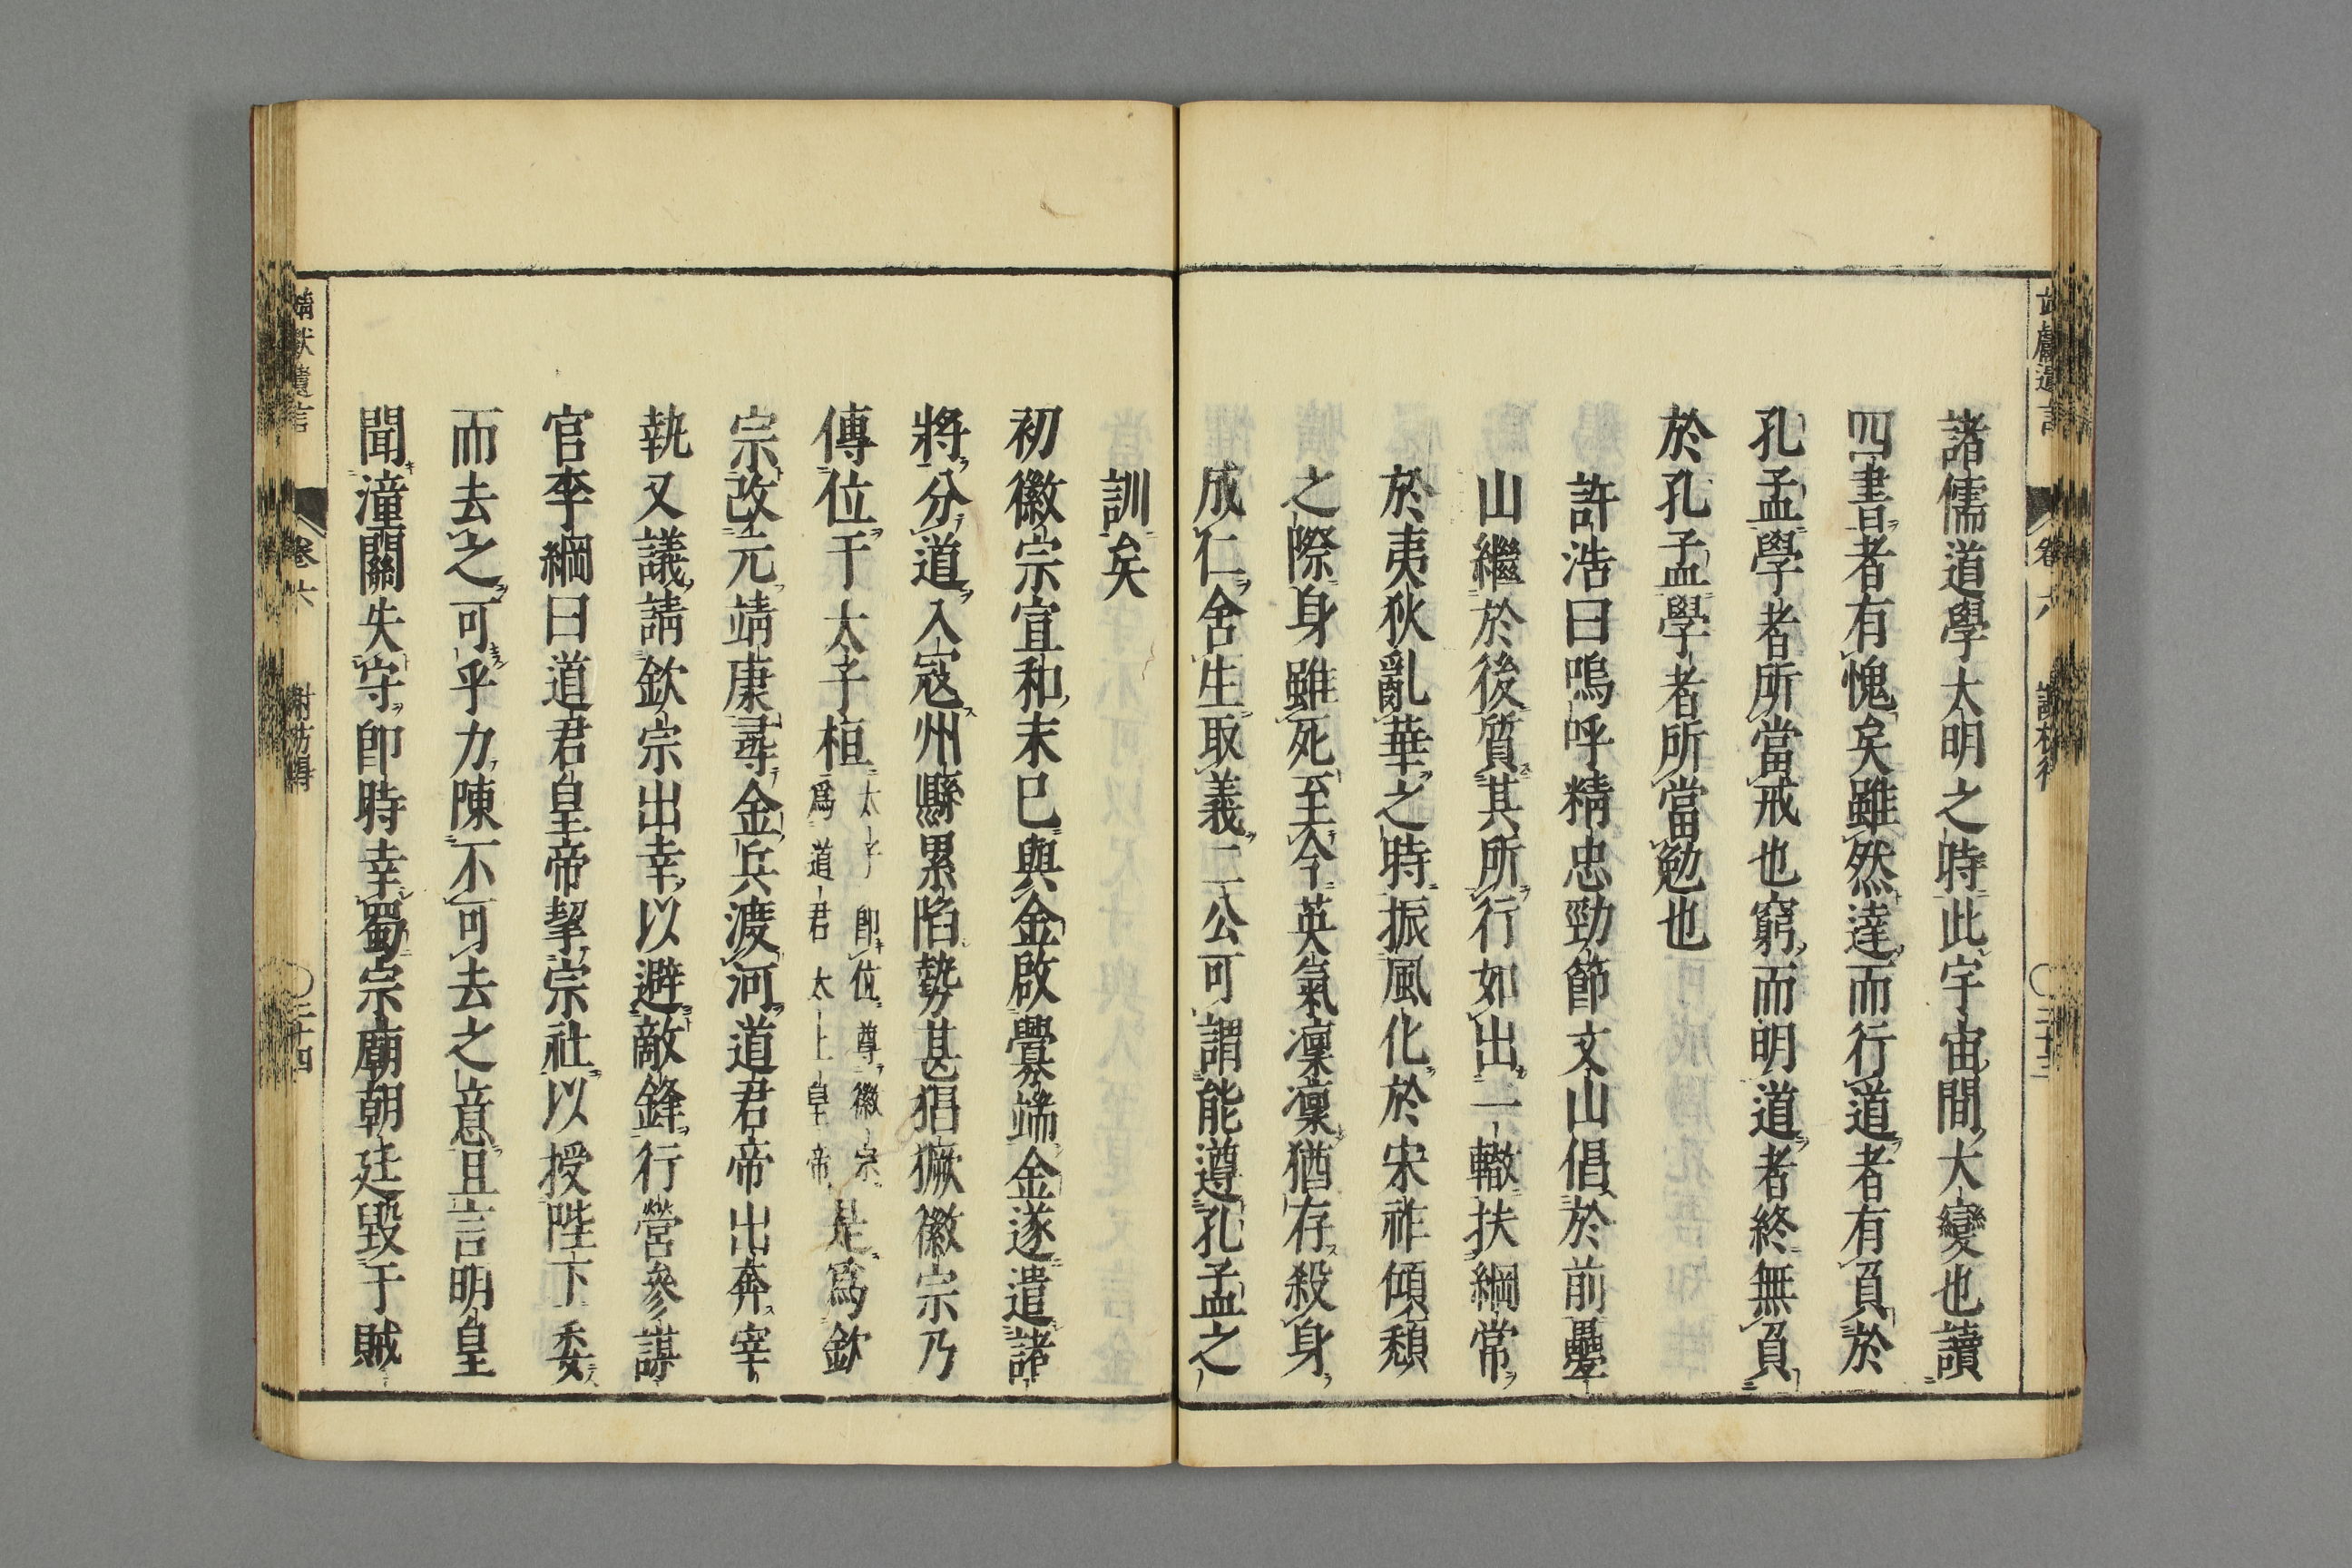 諸儒道學大明之時此宇宙間大變也讀
四書者有愧矣雖然達而行道者有負於
孔孟學者所當戒也窮而明道者終無負
於孔孟學者所當勉也
許浩曰嗚呼精忠勁節文山倡於前疊
山繼於後質其所行如出一轍扶綱常
於夷狄亂華之時振風化於宋祚傾頽
之際身雖死至今英氣凜凜猶存殺身
成仁舍生取義二公可謂能遵孔孟之
訓矣
初徽宗宣和末已與金啟釁端金遂遣諸
將分道入寇州縣累陷勢甚猖獗徽宗乃
傳位于太子桓太子即位尊徽宗爲道君太上皇帝是爲欽
宗改元靖康尋金兵渡河道君帝出奔宰
執又議請欽宗出幸以避敵鋒行營參謀
官李綱曰道君皇帝挈宗社以授陛下委
而去之可乎力陳不可去之意且言明皇
聞潼關失守即時幸蜀宗廟朝廷毀于賊
靖獻遺言 卷六 謝枋得 三十四